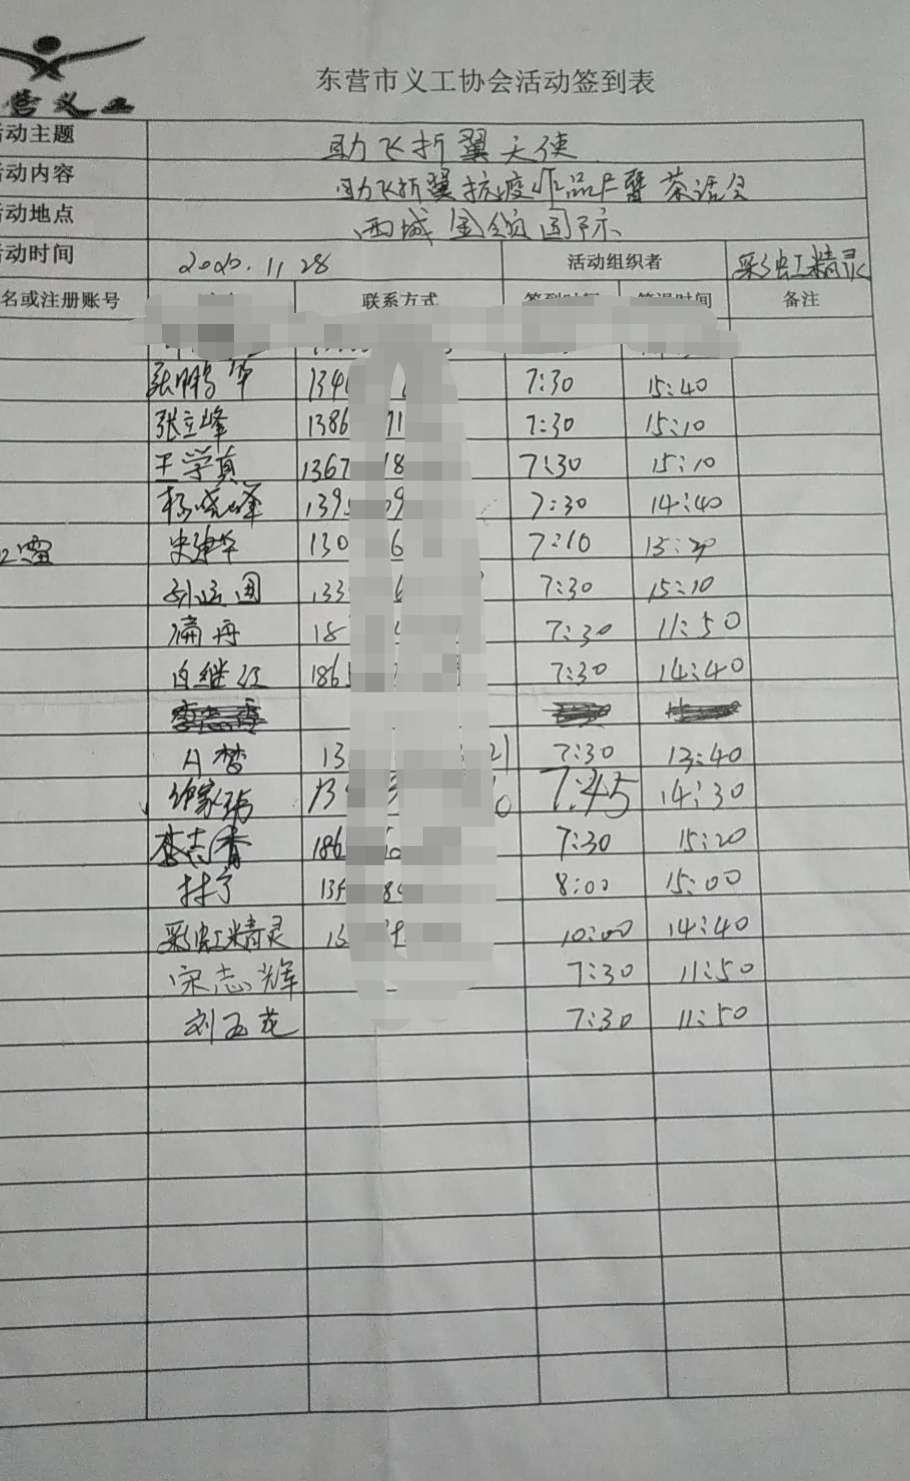 营义工
东营市义工协会活动签到表
活动主题 助飞折翼天使
活动内容 助飞折翼抗疫作品 茶话会
活动地点 西城 国际
活动时间 2020.11.28 活动组织者 彩虹精灵
名或注册账号 联系方式 签到时间 签退时间 备注
张鹏华 134 7:30 15:40
张立峰 1386 71 7:30 15:10
王学真 1367 18 7:30 15:10
杨晓峰 139 9 7:30 14:40
史建华 130 6 7:10 15:20
孙运国 133 6 7:30 15:10
再 18 7:30 11:50
继 186 7:30 14:40
梦 13 21 7:30 13:40
家 13 0 7:45 14:30
李志香 186 7:30 15:20
13 8 8:00 15:00
彩虹精灵 10:00 14:40
宋志辉 7:30 11:50
刘玉花 7:30 11:50